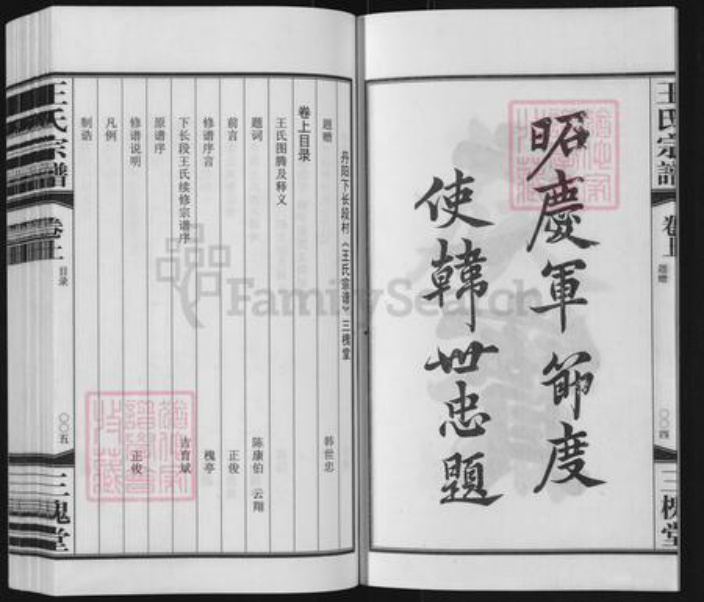 王氏宗譜
卷上
题赠
〇〇四
三槐堂
昭慶軍節度
使韓世忠題
丹阳下长段村《王氏宗谱》三槐堂
题赠 韩世忠
卷上目录
王氏图腾及释义
题词 陈康伯 云翔
前言 正俊
修谱序言 槐亭
下长段王氏续修宗谱序 吉育斌
原谱序
修谱说明 正俊
凡例
制诰
王氏宗譜
卷上
目录
〇〇五
三槐堂
FamilySearch